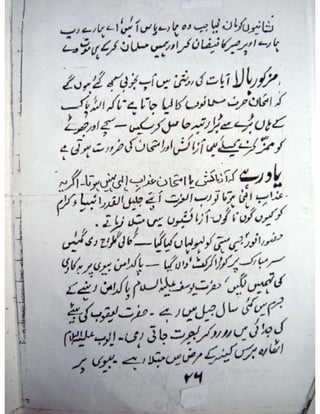 نشانیوں کو مان لیا جب وہ ہمارے پاس آئیں اے ہمارے رب
ہمارے اوپر صبر کا فیضان کر اور ہمیں مسلمان کر کے ہی موت دے
مذکور بالا آیات کی روشنی میں آپ بخوبی سمجھ گئے ہوں گے
کہ امتحان صرف مسلمانوں کا لیا جاتا ہے تاکہ اللہ پاک
کے ہاں بڑے سے بڑا رتبہ حاصل کر سکیں – سچے اور جھوٹے
کو کرنے کیلئے ہی آزمائش اور امتحان کی ضرورت ہوتی ہے
یاد رہے کہ آزمائش یا امتحان عذاب الٰہی نہیں ہوتا۔ اگر یہ
عذاب الٰہی ہوتا تو رب العزت اپنے جلیل القدر انبیا و کرام
کو کیوں گوں نا گوں آزمائشوں میں مبتلا فرماتے۔
حضور انور جیسی ہستی کو لہولہان کیا گیا – گالی گلوچ دی گئیں
سر مبارک پر کوڑا کرکٹ ڈالا گیا – پاکدامن بیوی پر بدکاری
کی تہمتیں لگیں حضرت یوسف علیہ السلام پاکدامن رہنے کے
جرم میں کئی سال جیل میں رہے۔ حضرت یعقوب کی بیٹے
کی جدائی میں رو رو کر بصارت جاتی رہی۔ ایوب علیہ السلام
اٹھارہ برس کے مرض میں مبتلا رہے – بیوی پر
۲۶